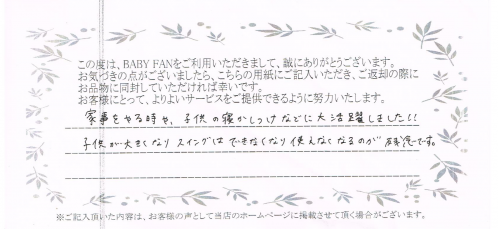 この度は、BABY FANをご利用いただきまして、誠にありがとうございます。
お気づきの点がございましたら、こちらの用紙にご記入いただき、ご返却の際に
お品物に同封していただければ幸いです。
お客様にとって、よりよいサービスをご提供できるように努力いたします。
家事をやる時や、子供の寝かしつけなどに大活躍しました!!
子供が大きくなりスイングはできなくなり使えなくなるのが残念です。
※ご記入頂いた内容は、お客様の声として当店のホームページに掲載させて頂く場合がございます。